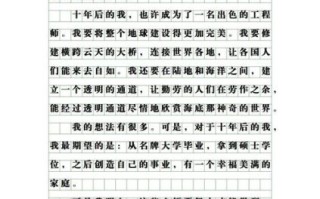 十年后的我，也许成为了一名出色的工程
师。我要将整个地球建设得更加完美。我要修
建横跨云天的大桥，连接世界各地，让各国人
们能来去自如。我还要在陆地和海洋之间，建
立一个透明的通道，让勤劳的人们在劳作之余，
能经过透明通道尽情地欣赏海底那神奇的世界。
我的想法有很多。可是，对于十年后的我，
我最期望的是：从名牌大学毕业，拿到硕士学
位，之后创造自己的事业，有一个幸福美满的
家庭。